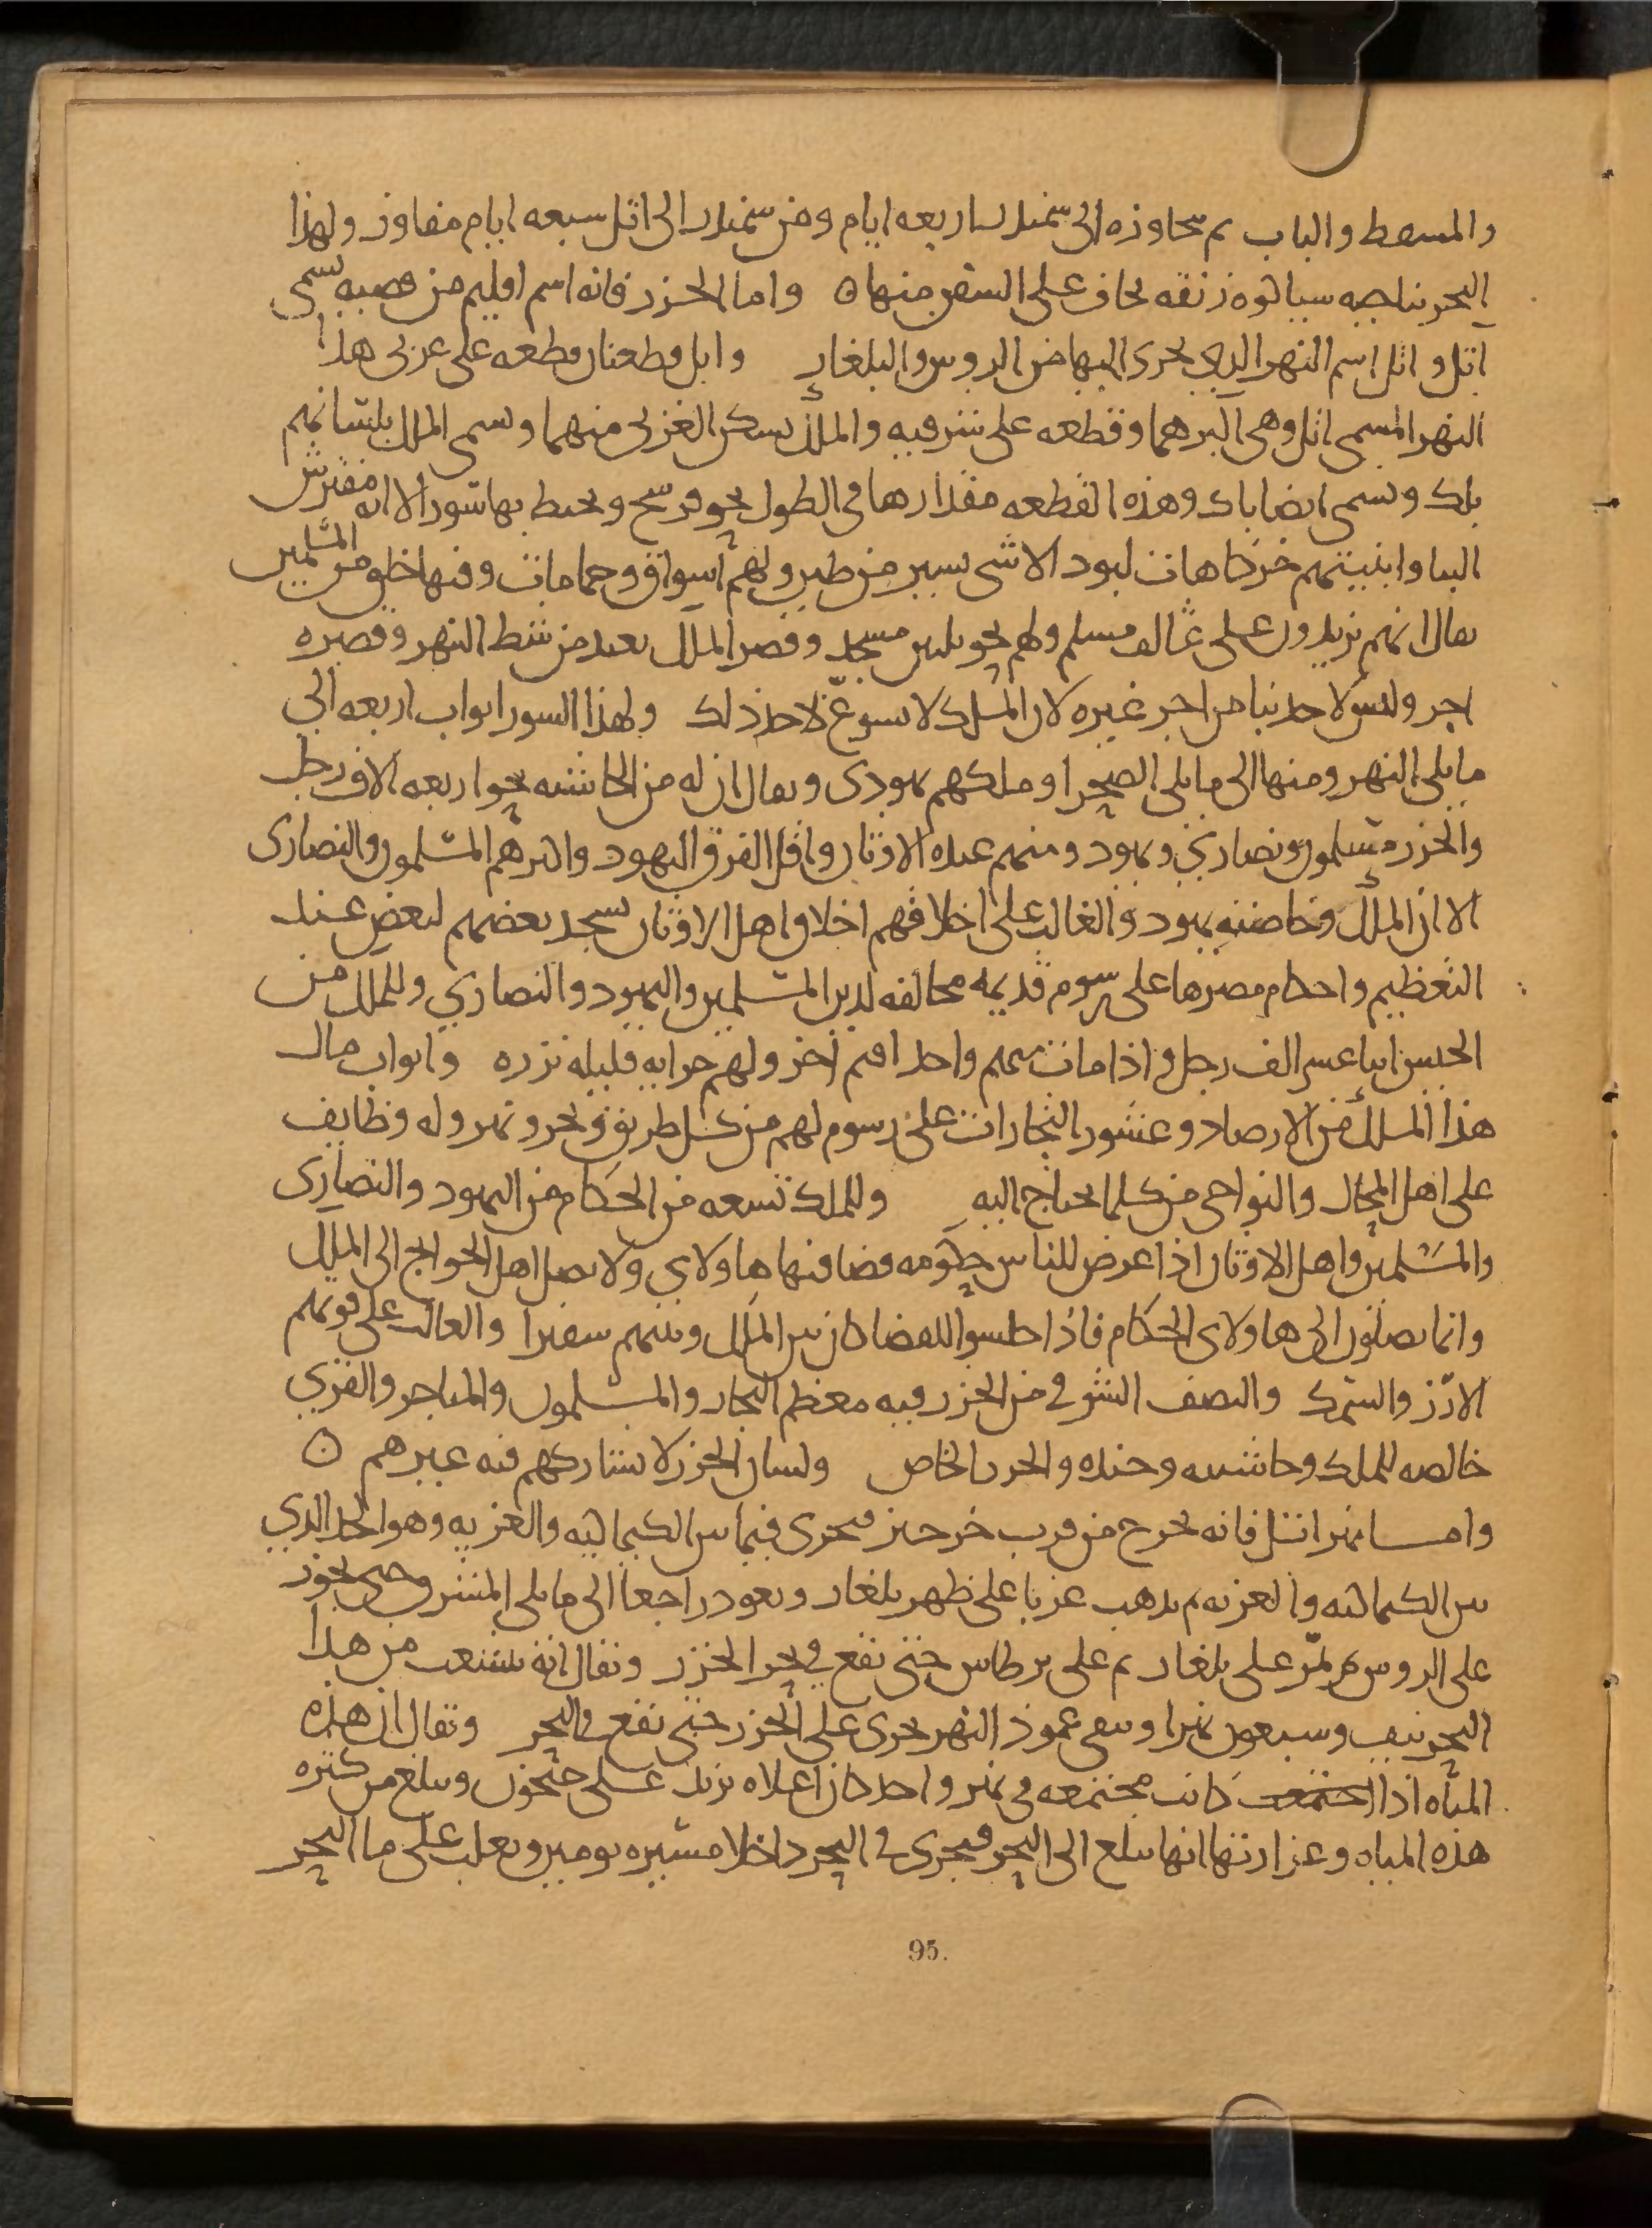 والمسقط والباب ثم تجاوزه الى سمندر اربعه ايام ومن سمندر الى اتل سبعه ايام مفاوز ولهذا
البحر بناحيه سياكوه زنقه يخاف على السفن منها ٥ واما الخزر فانه اسم اقليم من قصبه تسمى
اتل واتل اسم النهر الذي يجرى اليها من الروس والبلغار واتل قطعتان قطعه على غربى هذا
النهر المسمى اتل وهى اكبرهما وقطعه على شرقيه والملك يسكن الغربى منهما ويسمى الملك بلسانهم
بك ويسمى ايضا باك وهذه القطعه مقدارها فى الطول نحو فرسخ ويحيط بها سور الا انه مفترش
البنا وابنيتهم خركاهات لبود الا شى يسير من طين ولهم اسواق وحمامات وفيها خلق من المسلمين
يقال انهم يزيدون على عالف مسلم ولهم نحو ثلثين مسجد وقصر الملك بعيد من شط النهر وقصره
اجر وليس لاحد بنا من اجر غيره لان الملك لا يسوغ لاحد ذلك ولهذا السور ابواب اربعه الى
ما يلى النهر ومنها الى ما يلى الصحرا وملكهم يهودى ويقال ان له من الحاشيه نحو اربعه الاف رجل
والخزر مسلمون ونصاري ويهود ومنهم عبده الاوثان واقل الفرق اليهود واكثرهم المسلمون والنصارى
الا ان الملك وخاصته يهود والغالب على اخلاقهم اخلاق اهل الاوثان يسجد بعضهم لبعض عند
التعظيم واحكام مصرها على رسوم قديمه مخالفه لدين المسلمين واليهود والنصاري وللملك من
الجيش اثنا عشر الف رجل واذا مات منهم واحد اقيم اخر ولهم جرايه قليله نزره وابواب مال
هذا الملك من الارصاد وعشور التجارات على رسوم لهم من كل طريق وبحر ونهر وله وظايف
على اهل المحال والنواحى من كلما يحتاج اليه وللملك تسعه من الحكام من اليهود والنصارى
والمسلمين واهل الاوثان اذا عرض للناس حكومه قضا فيها هاولاي ولا يصل اهل الحوايج الى الملك
وانما يصلون الى هاولاى الحكام فاذا جلسوا للقضا كان بين الملك وبينهم سفيرا والغالب على قوتهم
الارز والسمك والنصف الشرقى من الخزر فيه معظم التجار والمسلمون والمتاجر والغربي
خالصه للملك وحاشيته وجنده والخزر الخاص ولسان الخزر لا يشاركهم فيه غيرهم ٥
واما نهر اتل فانه يخرج من قرب خرخيز فيجرى فيما بين الكيماكيه والغزيه وهو الحد الذي
بين الكيماكيه والغزيه ثم يذهب غربا على ظهر بلغار ويعود راجعا الى ما يلى المشرق حتى يجوز
على الروس ثم يمر على بلغار ثم على برطاس حتى يقع فى بحر الخزر ويقال انه يتشعب من هذا
البحر نيف وسبعون نهرا ويبقى عمود النهر يجرى على الخزر حتى يقع فى البحر ويقال ان هذه
المياه اذا اجتمعت كانت مجتمعه فى نهر واحد كان اعلاه يزيد على جيحون ويبلغ من كثره
هذه المياه وغزارتها انها تبلغ الى البحر فيجرى فى البحر داخلا مسيره يومين ويغلب على ما البحر
95.